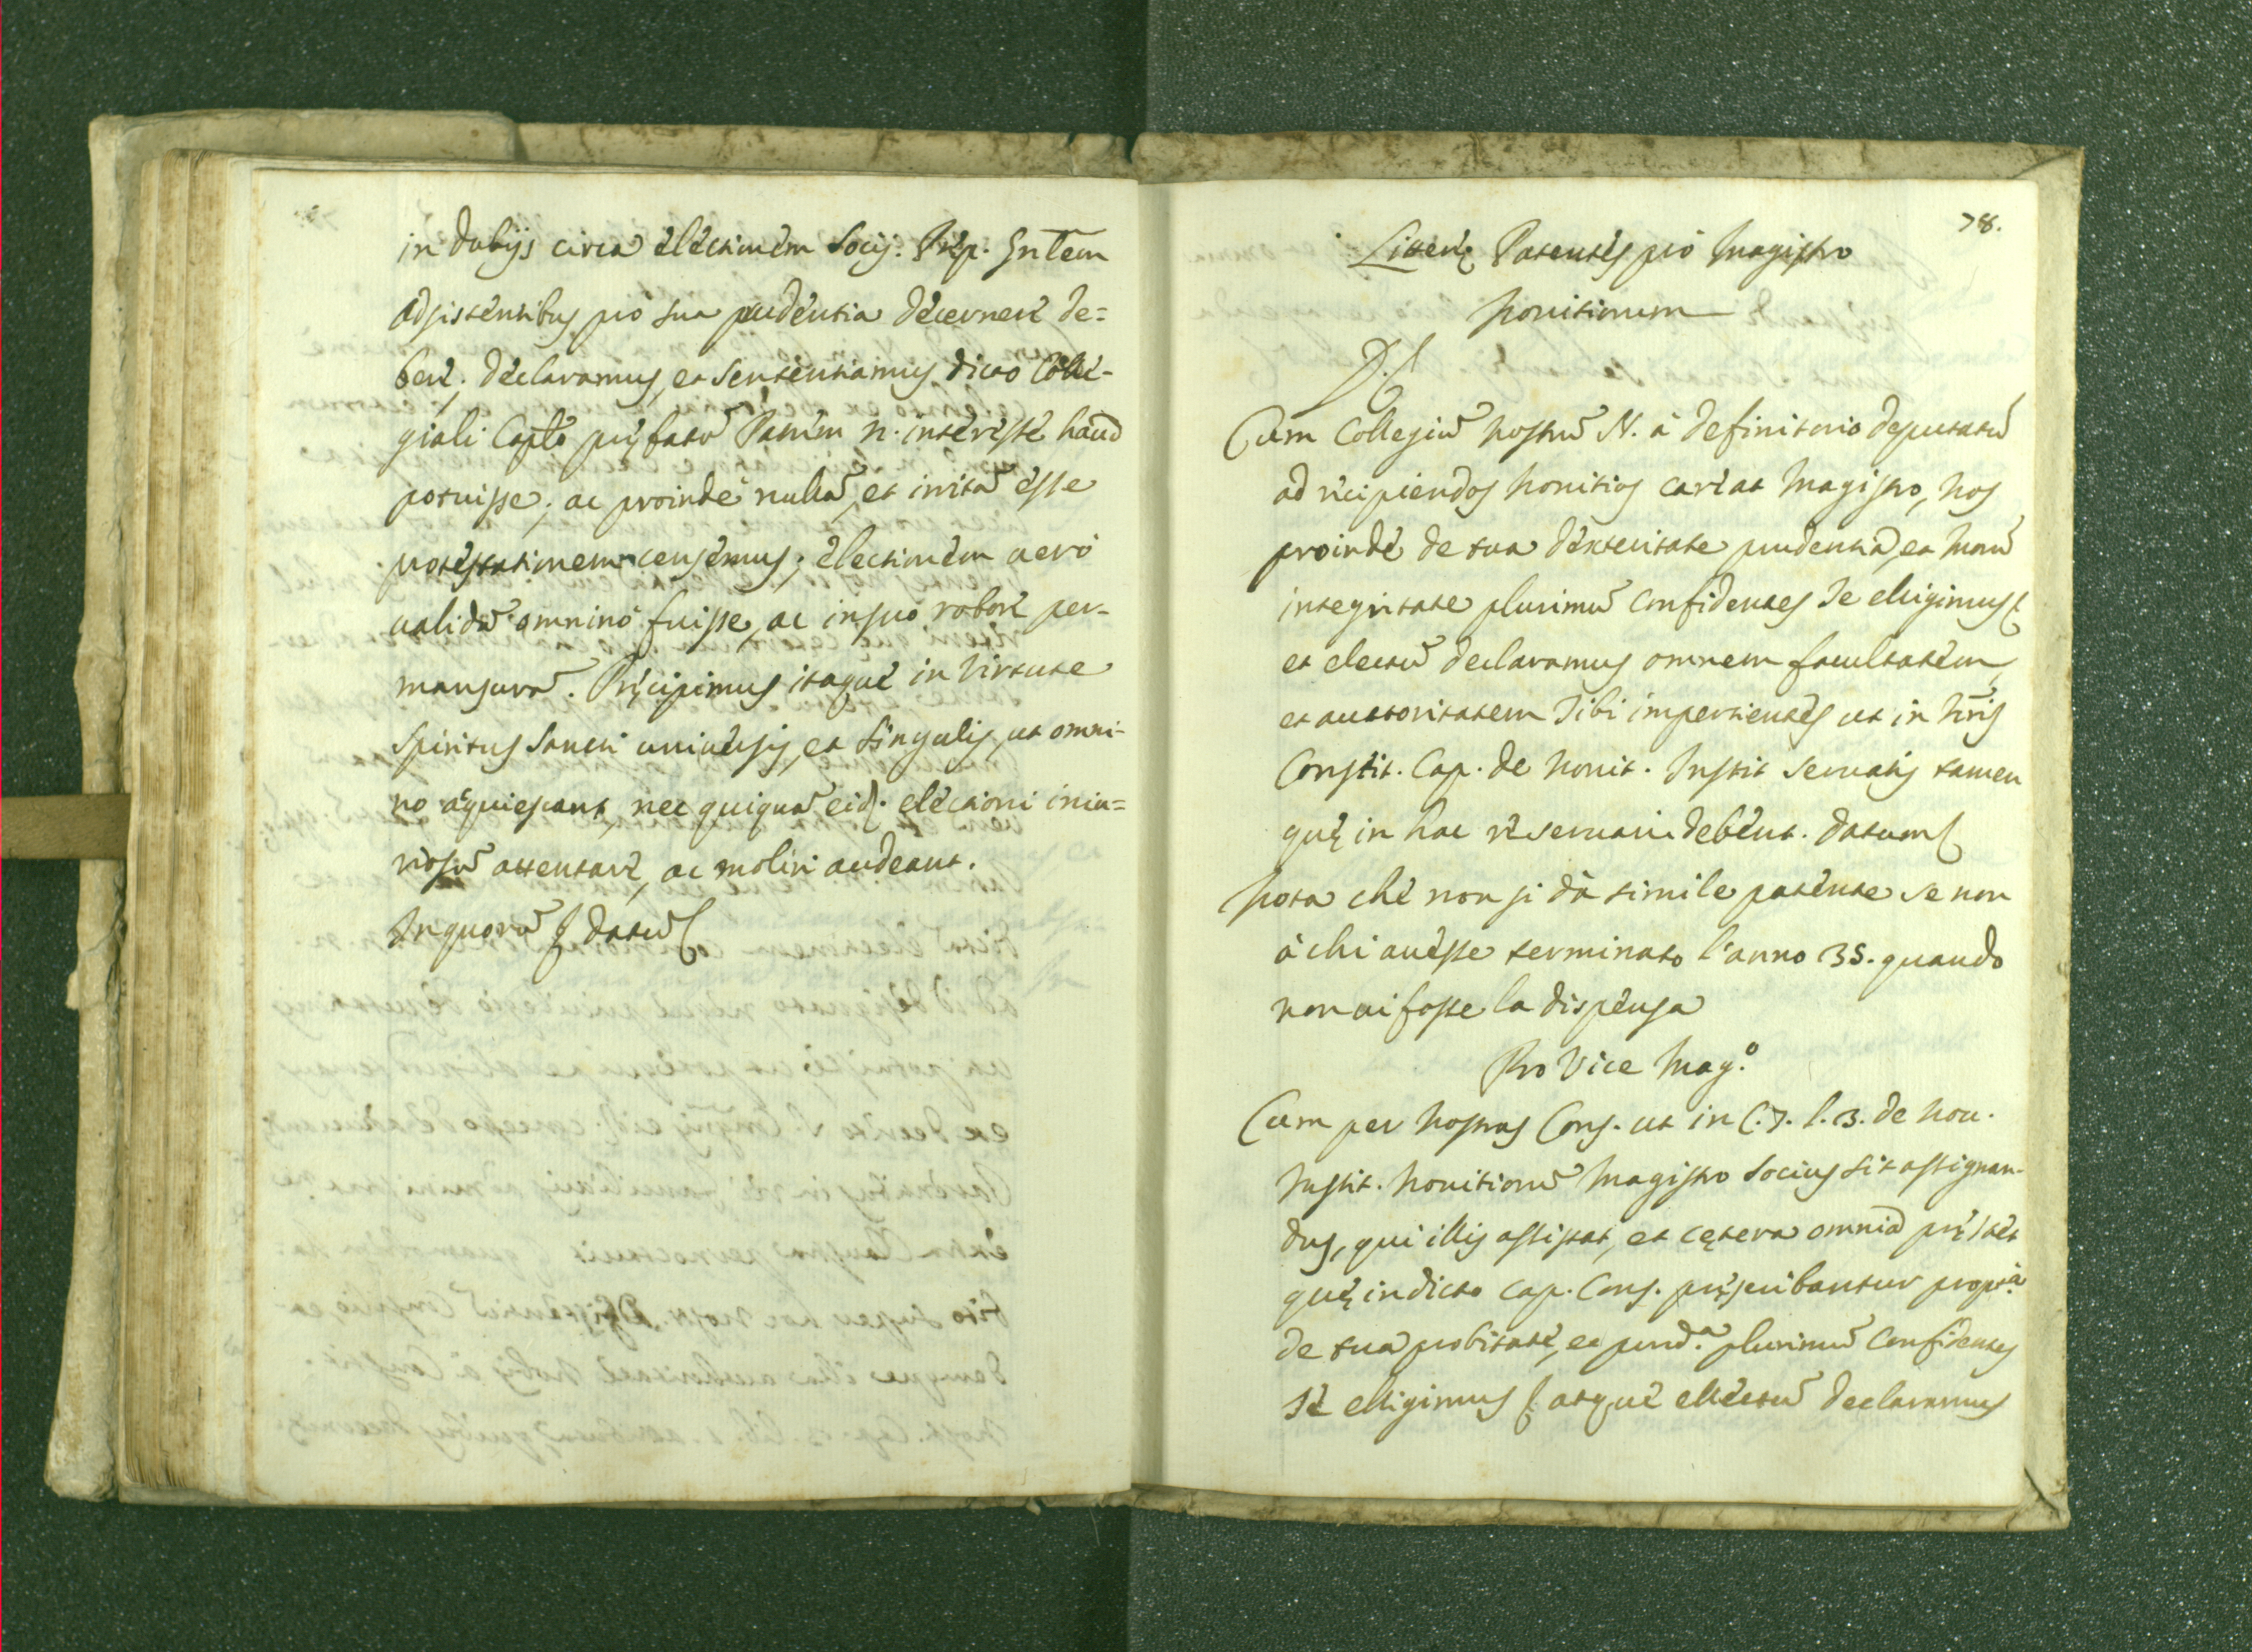 in dubijs circa electionem Socij. Prep. Gn̄lem
adsistentibus pro sua prudentia decernere de=
bere. declaramus, et sententiamus dicto Colle-
giali Caplo pręfatū Patrem N. interesse haud
potuisse; ac proinde nullā, et irritā esse
protestationem censemus; electionem uero
ualidā omnino fuisse, ac in suo robore per-
mansurā. Pręcipimus itaque in Virtute
Spiritus Sancti uniuersis, et singulis, ut omni-
no acquiescant, nec quiquā eid. electioni iniu=
riosū attentare, ac moliri audeant.
In quorū datū
78.
Literę Patentes pro Magistro
Nouitiorum
Cum Collegiū nostrū N. à Definitorio deputatū
ad recipiendos Nouitios careat Magistro, Nos
proinde de tua dexteritate prudentia, et morū
integritate plurimū confidentes Te elligimus
et electū declaramus omnem facultatem,
et auctoritatem Tibi impertientes ut in n̄ris
Constit. Cap. de Nouit. Instit seruatis tamen
quę in hac re seruari debent. Datum
Nota che non si dà simile patente se non
à chi auesse terminato l'anno 35. quando
non ui fosse la dispensa
Pro Vice Mag.º
Cum per Nostras Cons. ut in C. 7. l. 3. de Nou.
Instit. Nouitiorū Magistro Socius sit assignan-
dus, qui illis assistat, et cętera omnia pręstet
quę in dicto Cap. Cons. pręscribantur propt.ª
de tua probitate, et prud.ª plurimū confidentes
Te elligimus atque ellectū declaramus